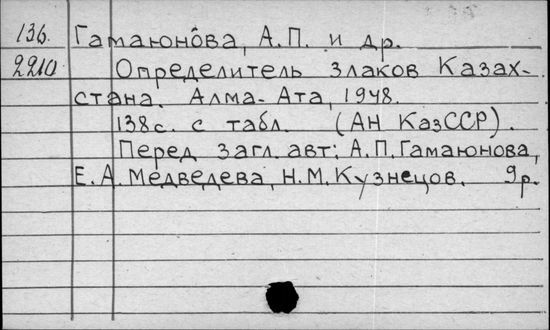 136. Гамаюнова, А.П. и др.
2210 Определитель злаков Казах-
стана. Алма-Ата, 1948.
138с. с табл. (АН КазССР).
Перед загл. авт: А.П.Гамаюнова,
Е.А.Медведева, Н.М.Кузнецов. 9р.